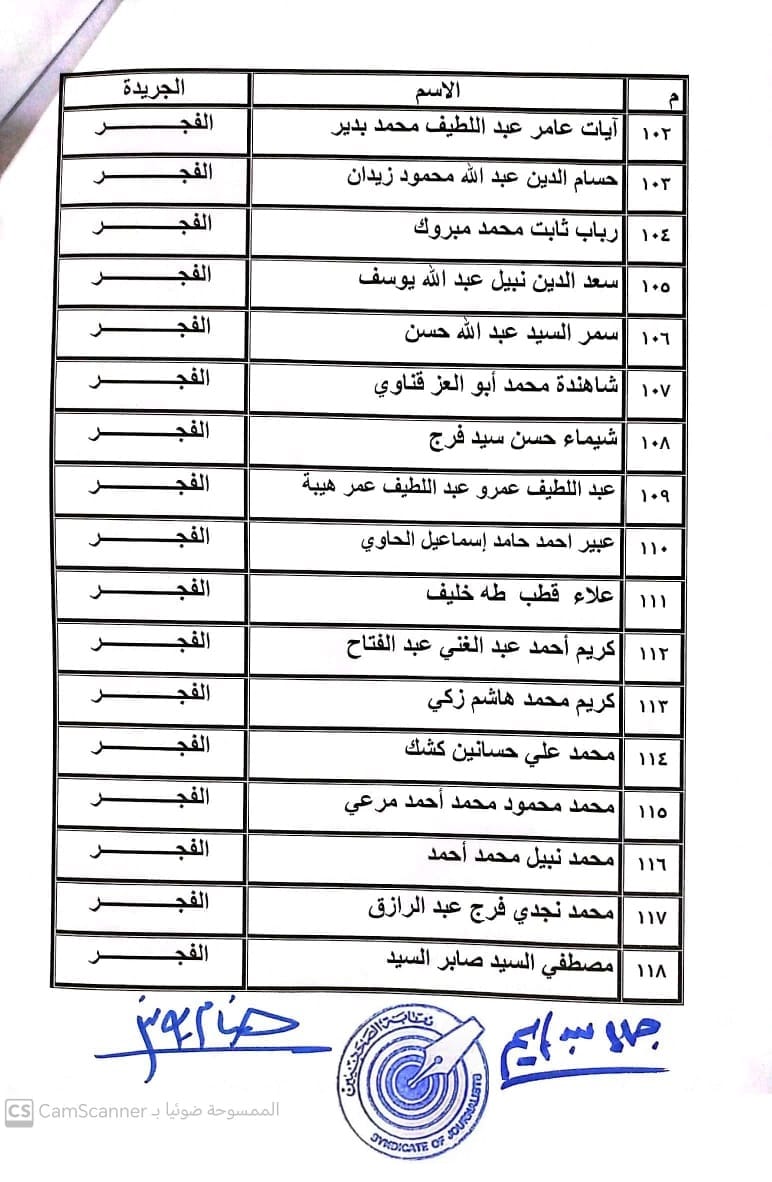 م الاسم الجريدة
١٠٢ آيات عامر عبد اللطيف محمد بدير الفجـــــــر
١٠٣ حسام الدين عبد الله محمود زيدان الفجـــــــر
١٠٤ رباب ثابت محمد مبروك الفجـــــــر
١٠٥ سعد الدين نبيل عبد الله يوسف الفجـــــــر
١٠٦ سمر السيد عبد الله حسن الفجـــــــر
١٠٧ شاهندة محمد أبو العز قناوي الفجـــــــر
١٠٨ شيماء حسن سيد فرج الفجـــــــر
١٠٩ عبد اللطيف عمرو عبد اللطيف عمر هيبة الفجـــــــر
١١٠ عبير احمد حامد إسماعيل الحاوي الفجـــــــر
١١١ علاء قطب طه خليف الفجـــــــر
١١٢ كريم أحمد عبد الغني عبد الفتاح الفجـــــــر
١١٣ كريم محمد هاشم زكي الفجـــــــر
١١٤ محمد علي حسانين كشك الفجـــــــر
١١٥ محمد محمود محمد أحمد مرعي الفجـــــــر
١١٦ محمد نبيل محمد أحمد الفجـــــــر
١١٧ محمد نجدي فرج عبد الرازق الفجـــــــر
١١٨ مصطفي السيد صابر السيد الفجـــــــر
نقابة الصحفيين
SYNDICATE OF JOURNALISTS
CS CamScanner الممسوحة ضوئيا بـ